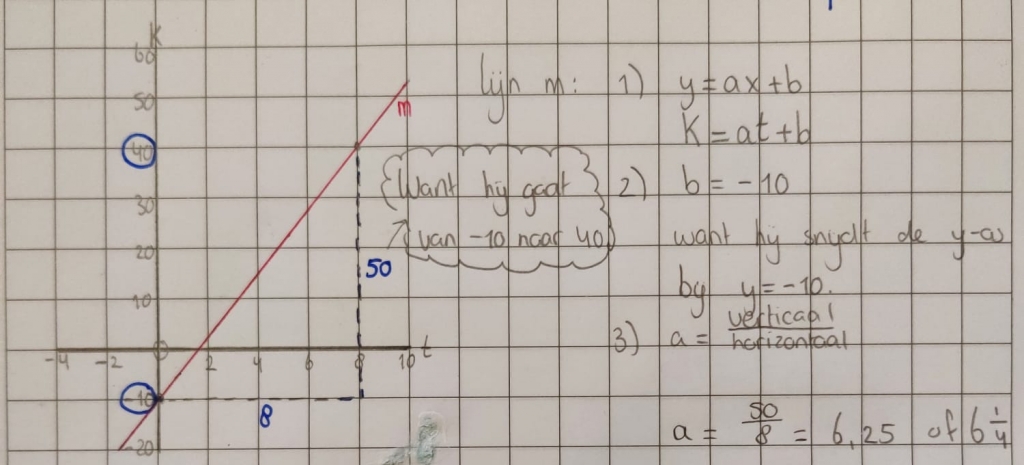 K
60
50
40
30
20
10
-4 -2 0 2 4 6 8 10 t
-10
-20
m
50
8
{Want hij gaat}
van -10 naar 40
lijn m: 1) y = ax + b
K = at + b
2) b = -10
want hij snijdt de y-as
bij y = -10.
3) a = verticaal / horizontaal
a = 50/8 = 6,25 of 6 1/4